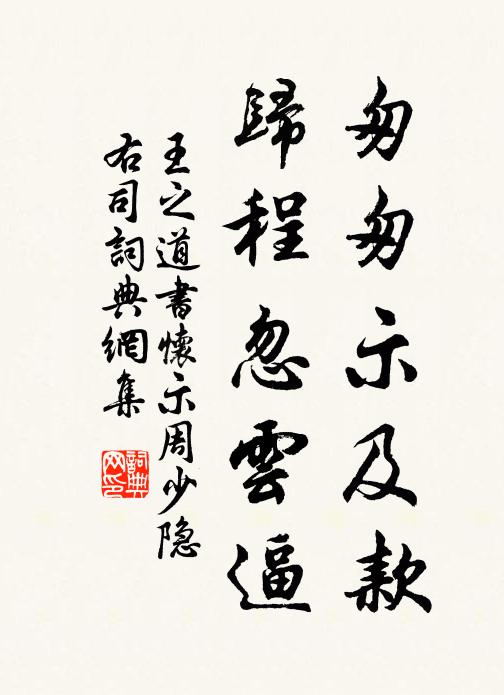 匆匆示及款
歸程忽雲逼
王之道書懷示周少隐
右司詞典網集
詞典
网印